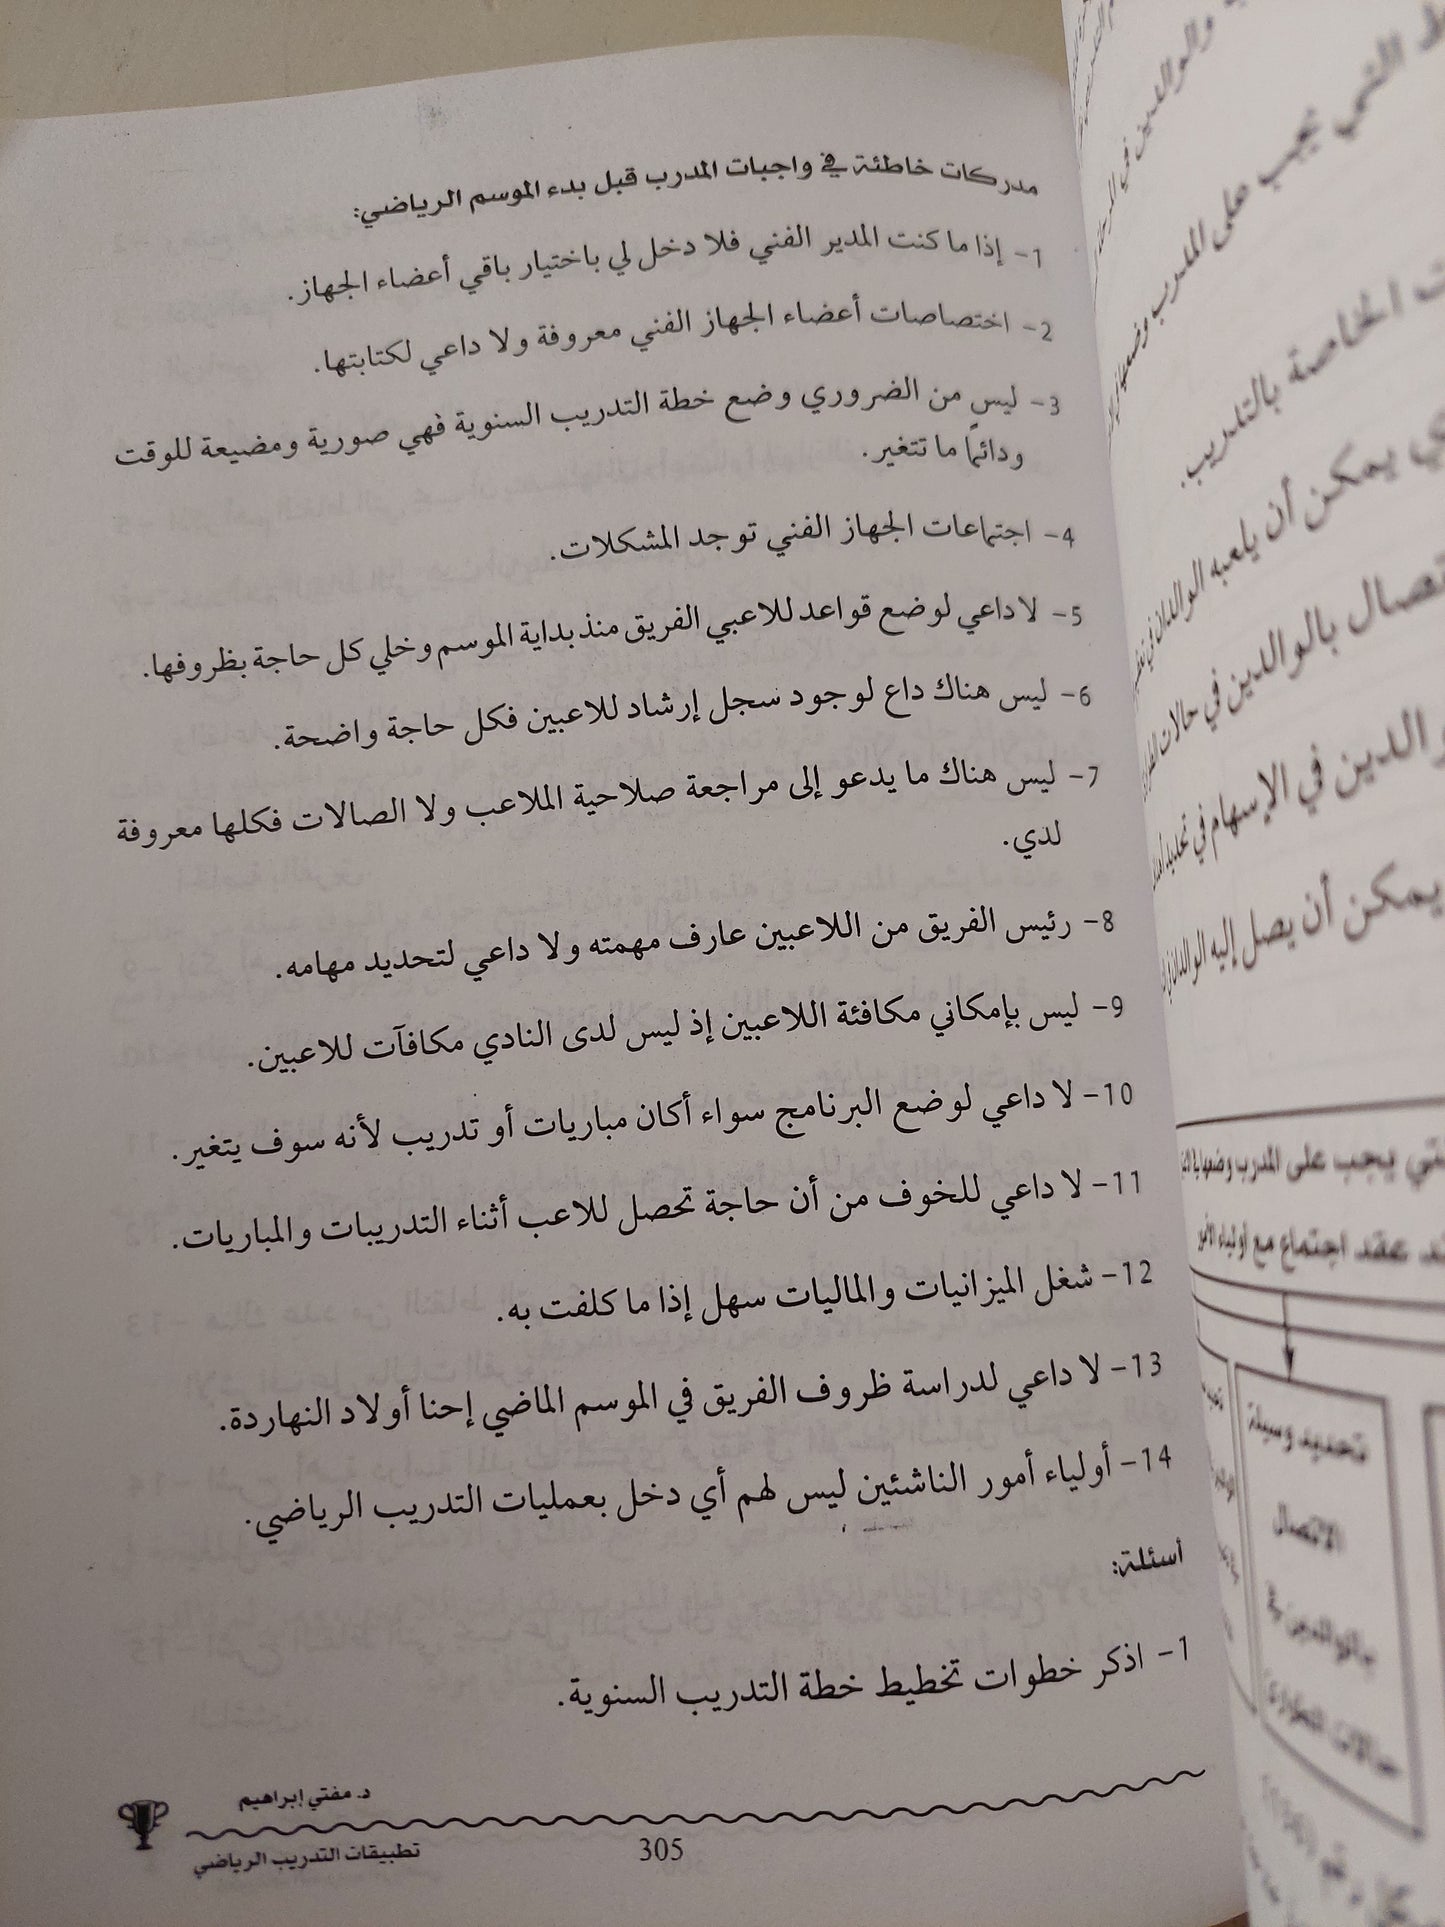 مدركات خاطئة في واجبات المدرب قبل بدء الموسم الرياضي:
1- إذا ما كنت المدير الفني فلا دخل لي باختيار باقي أعضاء الجهاز.
2- اختصاصات أعضاء الجهاز الفني معروفة ولا داعي لكتابتها.
3- ليس من الضروري وضع خطة التدريب السنوية فهي صورية ومضيعة للوقت
ودائمًا ما تتغير.
4- اجتماعات الجهاز الفني توجد المشكلات.
5- لا داعي لوضع قواعد للاعبي الفريق منذ بداية الموسم وخلي كل حاجة بظروفها.
6- ليس هناك داع لوجود سجل إرشاد للاعبين فكل حاجة واضحة.
7- ليس هناك ما يدعو إلى مراجعة صلاحية الملاعب ولا الصالات فكلها معروفة
لدي.
8- رئيس الفريق من اللاعبين عارف مهمته ولا داعي لتحديد مهامه.
9- ليس بإمكاني مكافئة اللاعبين إذ ليس لدى النادي مكافآت للاعبين.
10- لا داعي لوضع البرنامج سواء أكان مباريات أو تدريب لأنه سوف يتغير.
11- لا داعي للخوف من أن حاجة تحصل للاعب أثناء التدريبات والمباريات.
12- شغل الميزانيات والماليات سهل إذا ما كلفت به.
13- لا داعي لدراسة ظروف الفريق في الموسم الماضي إحنا أولاد النهاردة.
14- أولياء أمور الناشئين ليس لهم أي دخل بعمليات التدريب الرياضي.
أسئلة:
1- اذكر خطوات تخطيط خطة التدريب السنوية.
د. مفتي إبراهيم
تطبيقات التدريب الرياضي
305
والوالدين في
يجب على المدرب وضعها
الخاصة بالتدريب.
يمكن أن يلعبه الوالدان في
بالوالدين في حالات
في الإسهام في تحديد
يمكن أن يصل إليه الوالدان
يجب على المدرب وضعها
عقد اجتماع مع أولياء الأمور
تحديد وسيلة
الاتصال
بالوالدين في
حالات الطوارئ